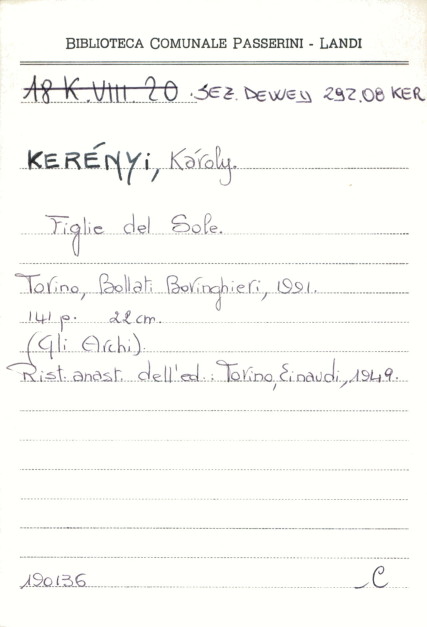 BIBLIOTECA COMUNALE PASSERINI - LANDI
18 K.VIII.20 . SEZ. DEWEY 292.08 KER
KERÉNYI, Károly.
Figlie del Sole.
Torino, Bollati Boringhieri, 1991.
141 p. 22 cm.
(Gli Archi)
Rist. anast. dell'ed.: Torino, Einaudi, 1949.
190136 C